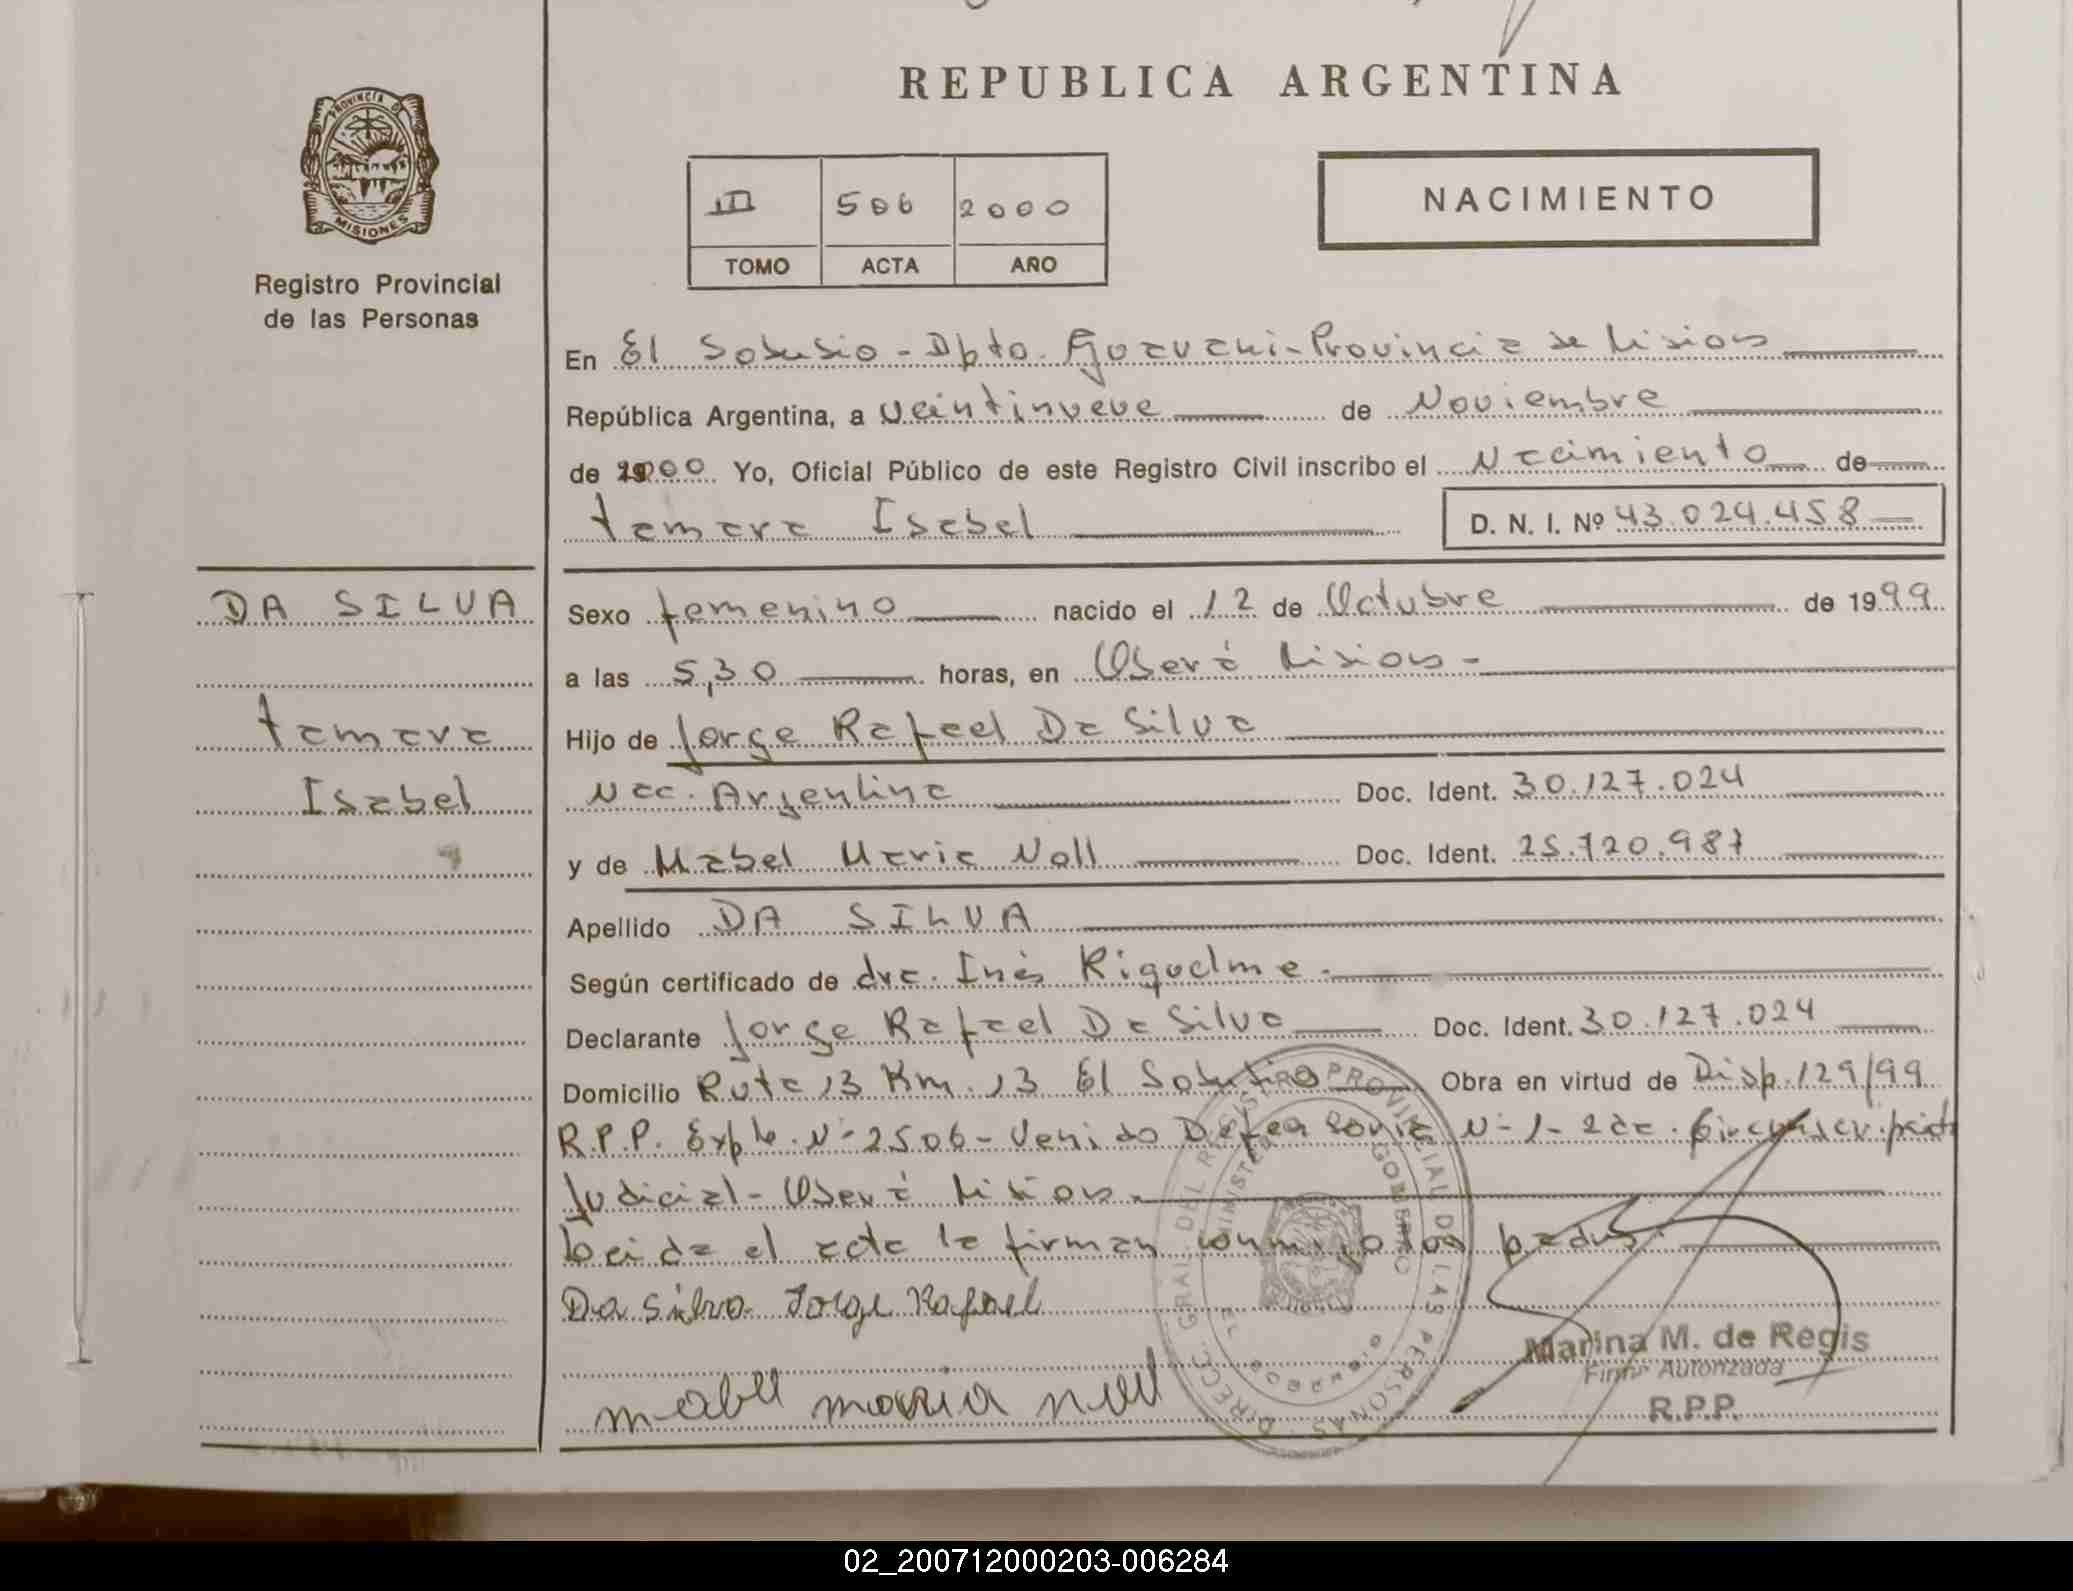 PROVINCIA DE
MISIONES
Registro Provincial
de las Personas
REPUBLICA ARGENTINA
III 506 2000
TOMO ACTA AÑO
NACIMIENTO
En El Soberbio - Dpto. Guarani - Provincia de Misiones
República Argentina, a veintinueve de Noviembre
de 2000 Yo, Oficial Público de este Registro Civil inscribo el Nacimiento de
tamara Isabel D. N. I. Nº 43.024.458
DA SILVA
tamara
Isabel
Sexo femenino nacido el 12 de Octubre de 1999
a las 5,30 horas, en Oberá Misiones -
Hijo de Jorge Rafael Da Silva
Nac. Argentina Doc. Ident. 30.127.024
y de Mabel Maria Noll Doc. Ident. 25.720.987
Apellido DA SILVA
Según certificado de dra. Inés Riquelme -
Declarante Jorge Rafael Da Silva Doc. Ident. 30.127.024
Domicilio Ruta 13 Km. 13 El Soberbio Obra en virtud de Disp. 129/99
R.P.P. Expte. Nº 2506 - Venido Defensoría Nº 1 - 2da.
Judicial - Oberá Misiones -
Leida el acta la firman conmigo los padres.
Da Silva Jorge Rafael
Mabel maria noll
DIRECC. GRAL. DEL REGISTRO PROVINCIAL DE LAS PERSONAS
MINISTERIO DE GOBIERNO
EL SOBERBIO
Marina M. de Regis
Firma Autorizada
R.P.P.
02_200712000203-006284